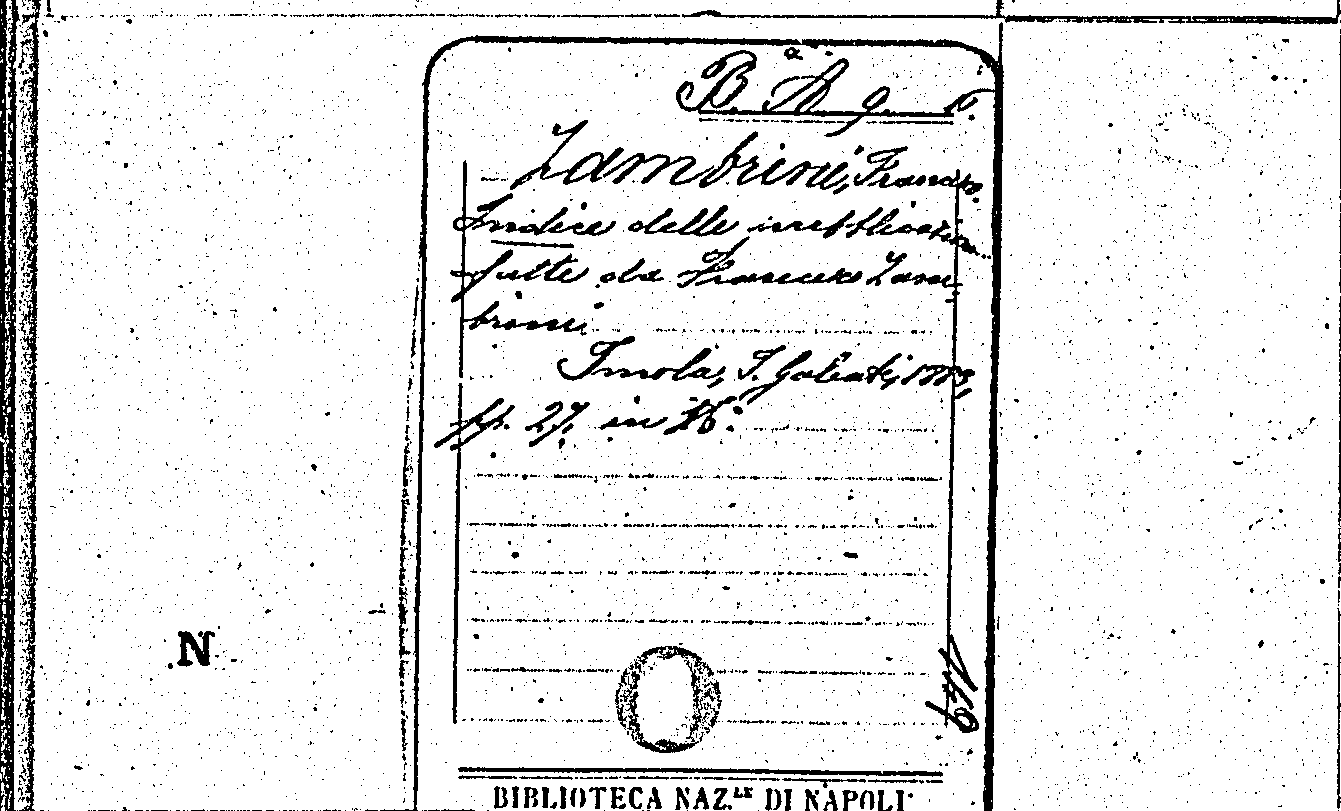 B. A. g.
Zambrini, Francesco.
Indice delle pubblicazioni
fatte da Francesco Zam-
brini.
Imola, I. Galeati, 1883,
pp. 27. in 16.°
N
149
BIBLIOTECA NAZ.LE DI NAPOLI